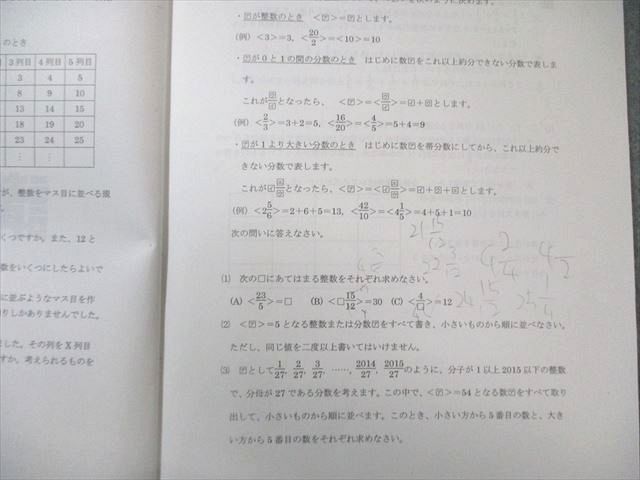 のとき
3列目 4列目 5列目
3 4 5
8 9 10
13 14 15
18 19 20
23 24 25
⋮ ⋮ ⋮
が、整数をマス目に並べる規
くつですか。また、12と
数をいくつにしたらよいで
に並ぶようなマス目を作
りしかありませんでした。
ました。その列をX列目
すか。考えられるものを
・ア が整数のとき <ア>=アとします。
(例) <3>=3, <20/2>=<10>=10
・アが0と1の間の分数のとき はじめに数アをこれ以上約分できない分数で表しま
す。
(例) <2/3>=3+2=5, <16/20>=<4/5>=5+4=9
・アが1より大きい分数のとき はじめに数アを帯分数にしてから、これ以上約分で
きない分数で表します。
(例) <2 5/6>=2+6+5=13, <42/10>=<4 1/5>=4+5+1=10
次の問いに答えなさい。
(1) 次の□にあてはまる整数をそれぞれ求めなさい。
(A) <23/5>=□ (B) <□ 15/12>=30 (C) <4/□>=12
(2) <ア>=5となる整数または分数アをすべて書き、小さいものから順に並べなさい。
ただし、同じ値を二度以上書いてはいけません。
(3) アとして1/27, 2/27, 3/27, ……, 2014/27, 2015/27のように、分子が1以上2015以下の整数
で、分母が27である分数を考えます。この中で、<ア>=54となる数アをすべて取り
出して、小さいものから順に並べます。このとき、小さい方から5番目の数と、大き
い方から5番目の数をそれぞれ求めなさい。